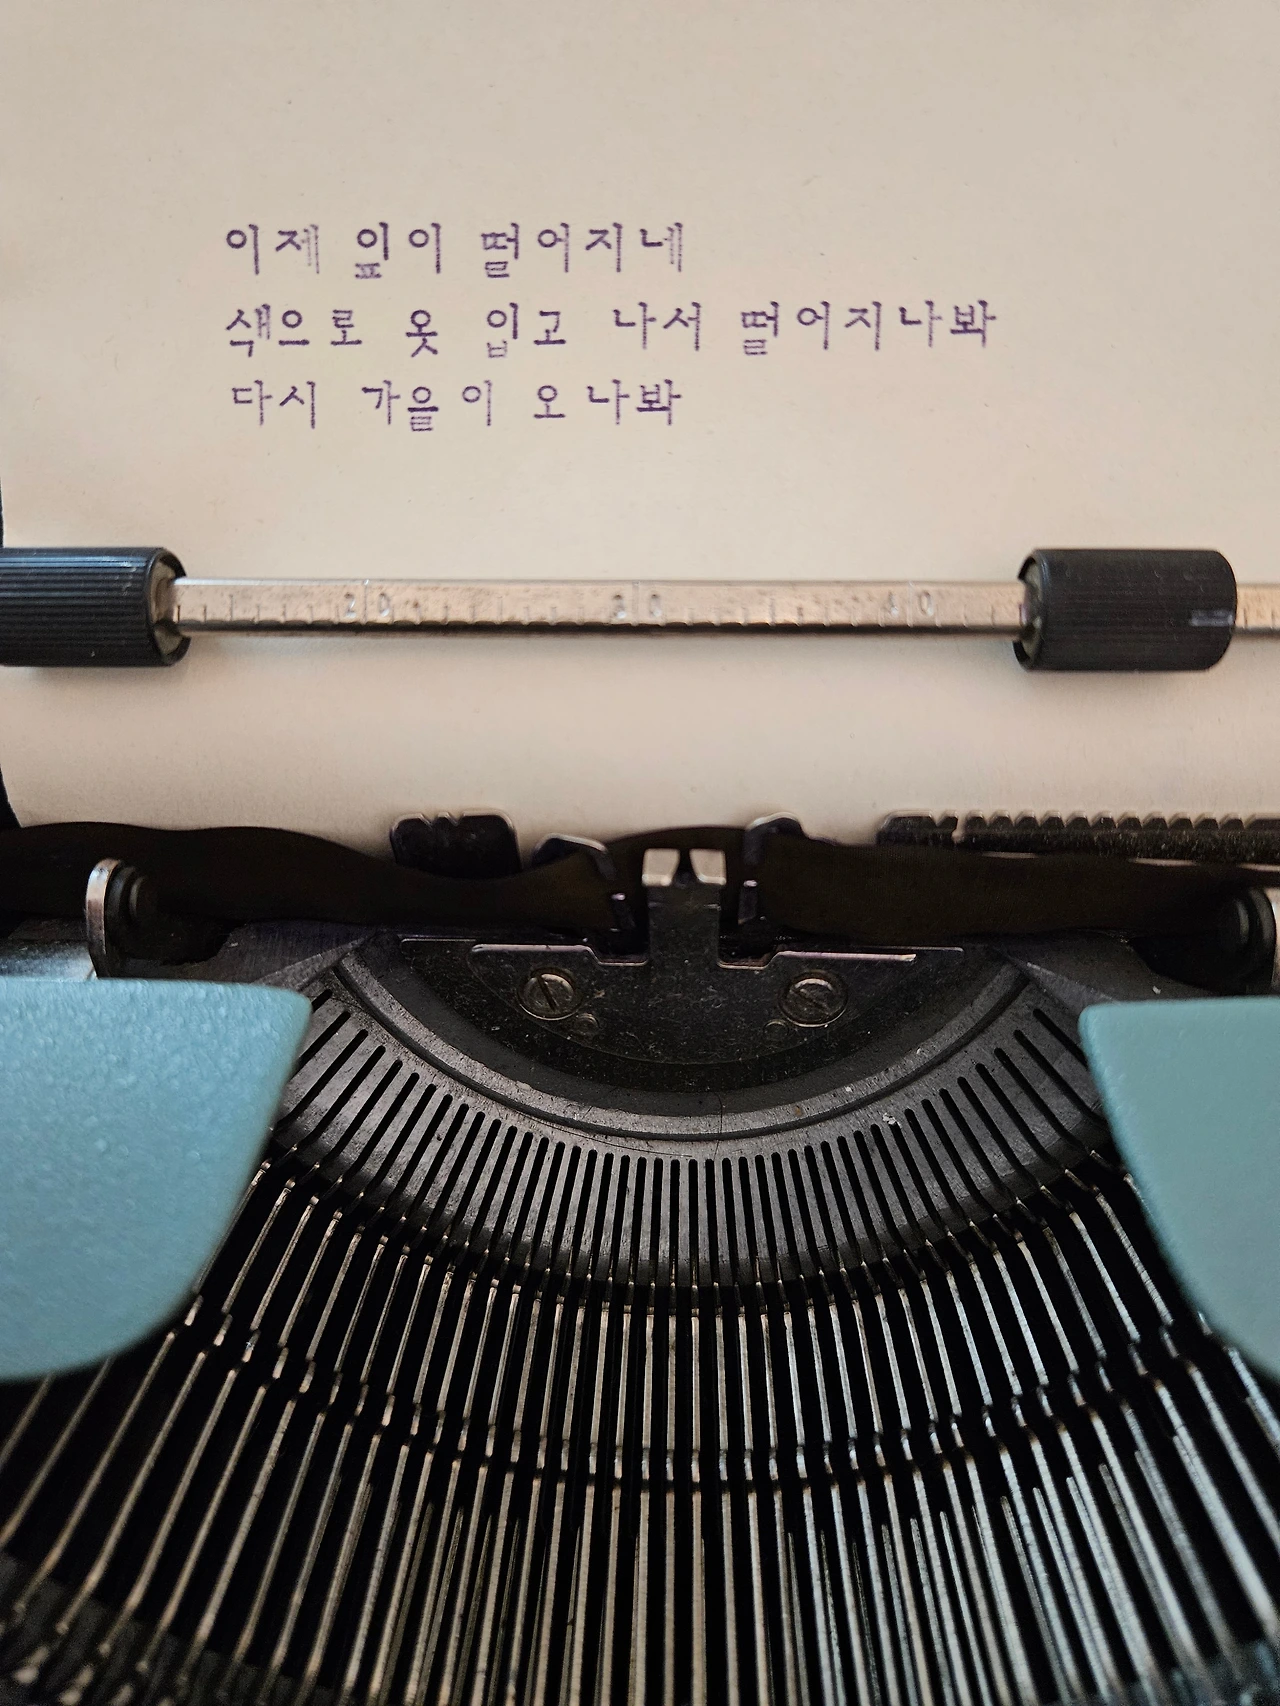 이제 잎이 떨어지네
색으로 옷 입고 나서 떨어지나봐
다시 가을이 오나봐
20 30 40